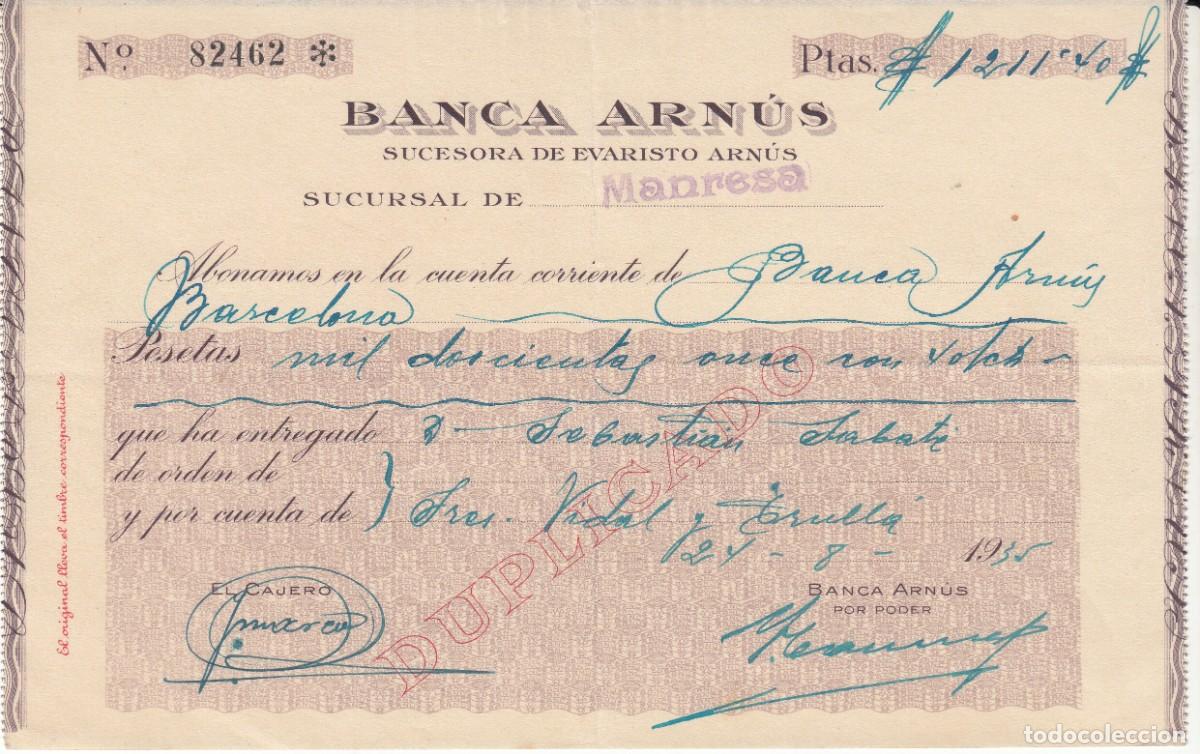 Nº 82462 * Ptas. # 1211'40 #
BANCA ARNÚS
SUCESORA DE EVARISTO ARNÚS
SUCURSAL DE Manresa
Abonamos en la cuenta corriente de Banca Arnús
Barcelona
Pesetas mil doscientas once con 40 cts
que ha entregado D Sebastián Sabaté
de orden de
y por cuenta de } Sres. Vidal y Trullá
24 - 8 - 1.935
EL CAJERO
BANCA ARNÚS
POR PODER
DUPLICADO
El original lleva el timbre correspondiente
todocoleccion